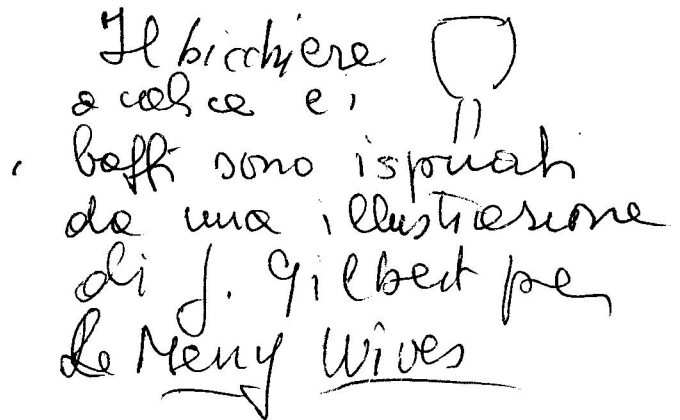 Il bicchiere
a calice e i
baffi sono ispirati
da una illustrazione
di J. Gilbert per
le Merry Wives